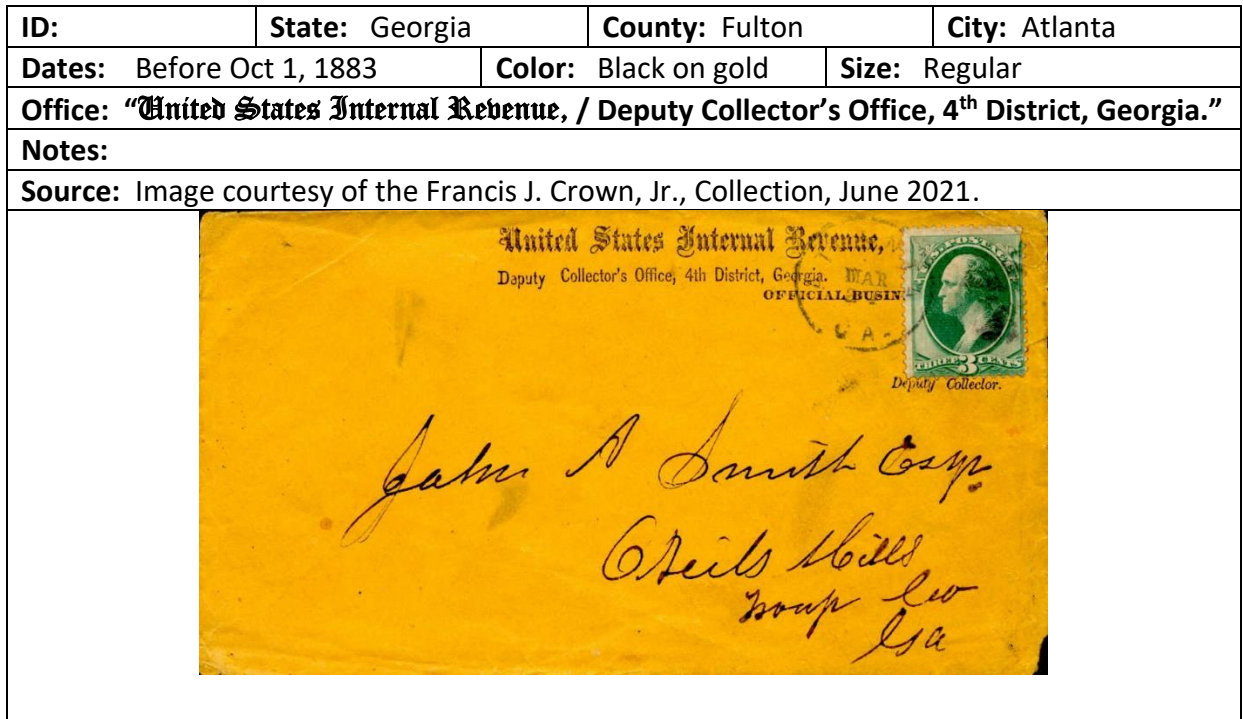 ID: State: Georgia County: Fulton City: Atlanta
Dates: Before Oct 1, 1883 Color: Black on gold Size: Regular
Office: “United States Internal Revenue, / Deputy Collector’s Office, 4th District, Georgia.”
Notes:
Source: Image courtesy of the Francis J. Crown, Jr., Collection, June 2021.
United States Internal Revenue,
Deputy Collector's Office, 4th District, Georgia.
OFFICIAL BUSIN
MAR
GA.
U.S. POSTAGE
THREE 3 CENTS
Deputy Collector.
John A Smith Esqr
O'Neils Mills
Troup Co
Ga